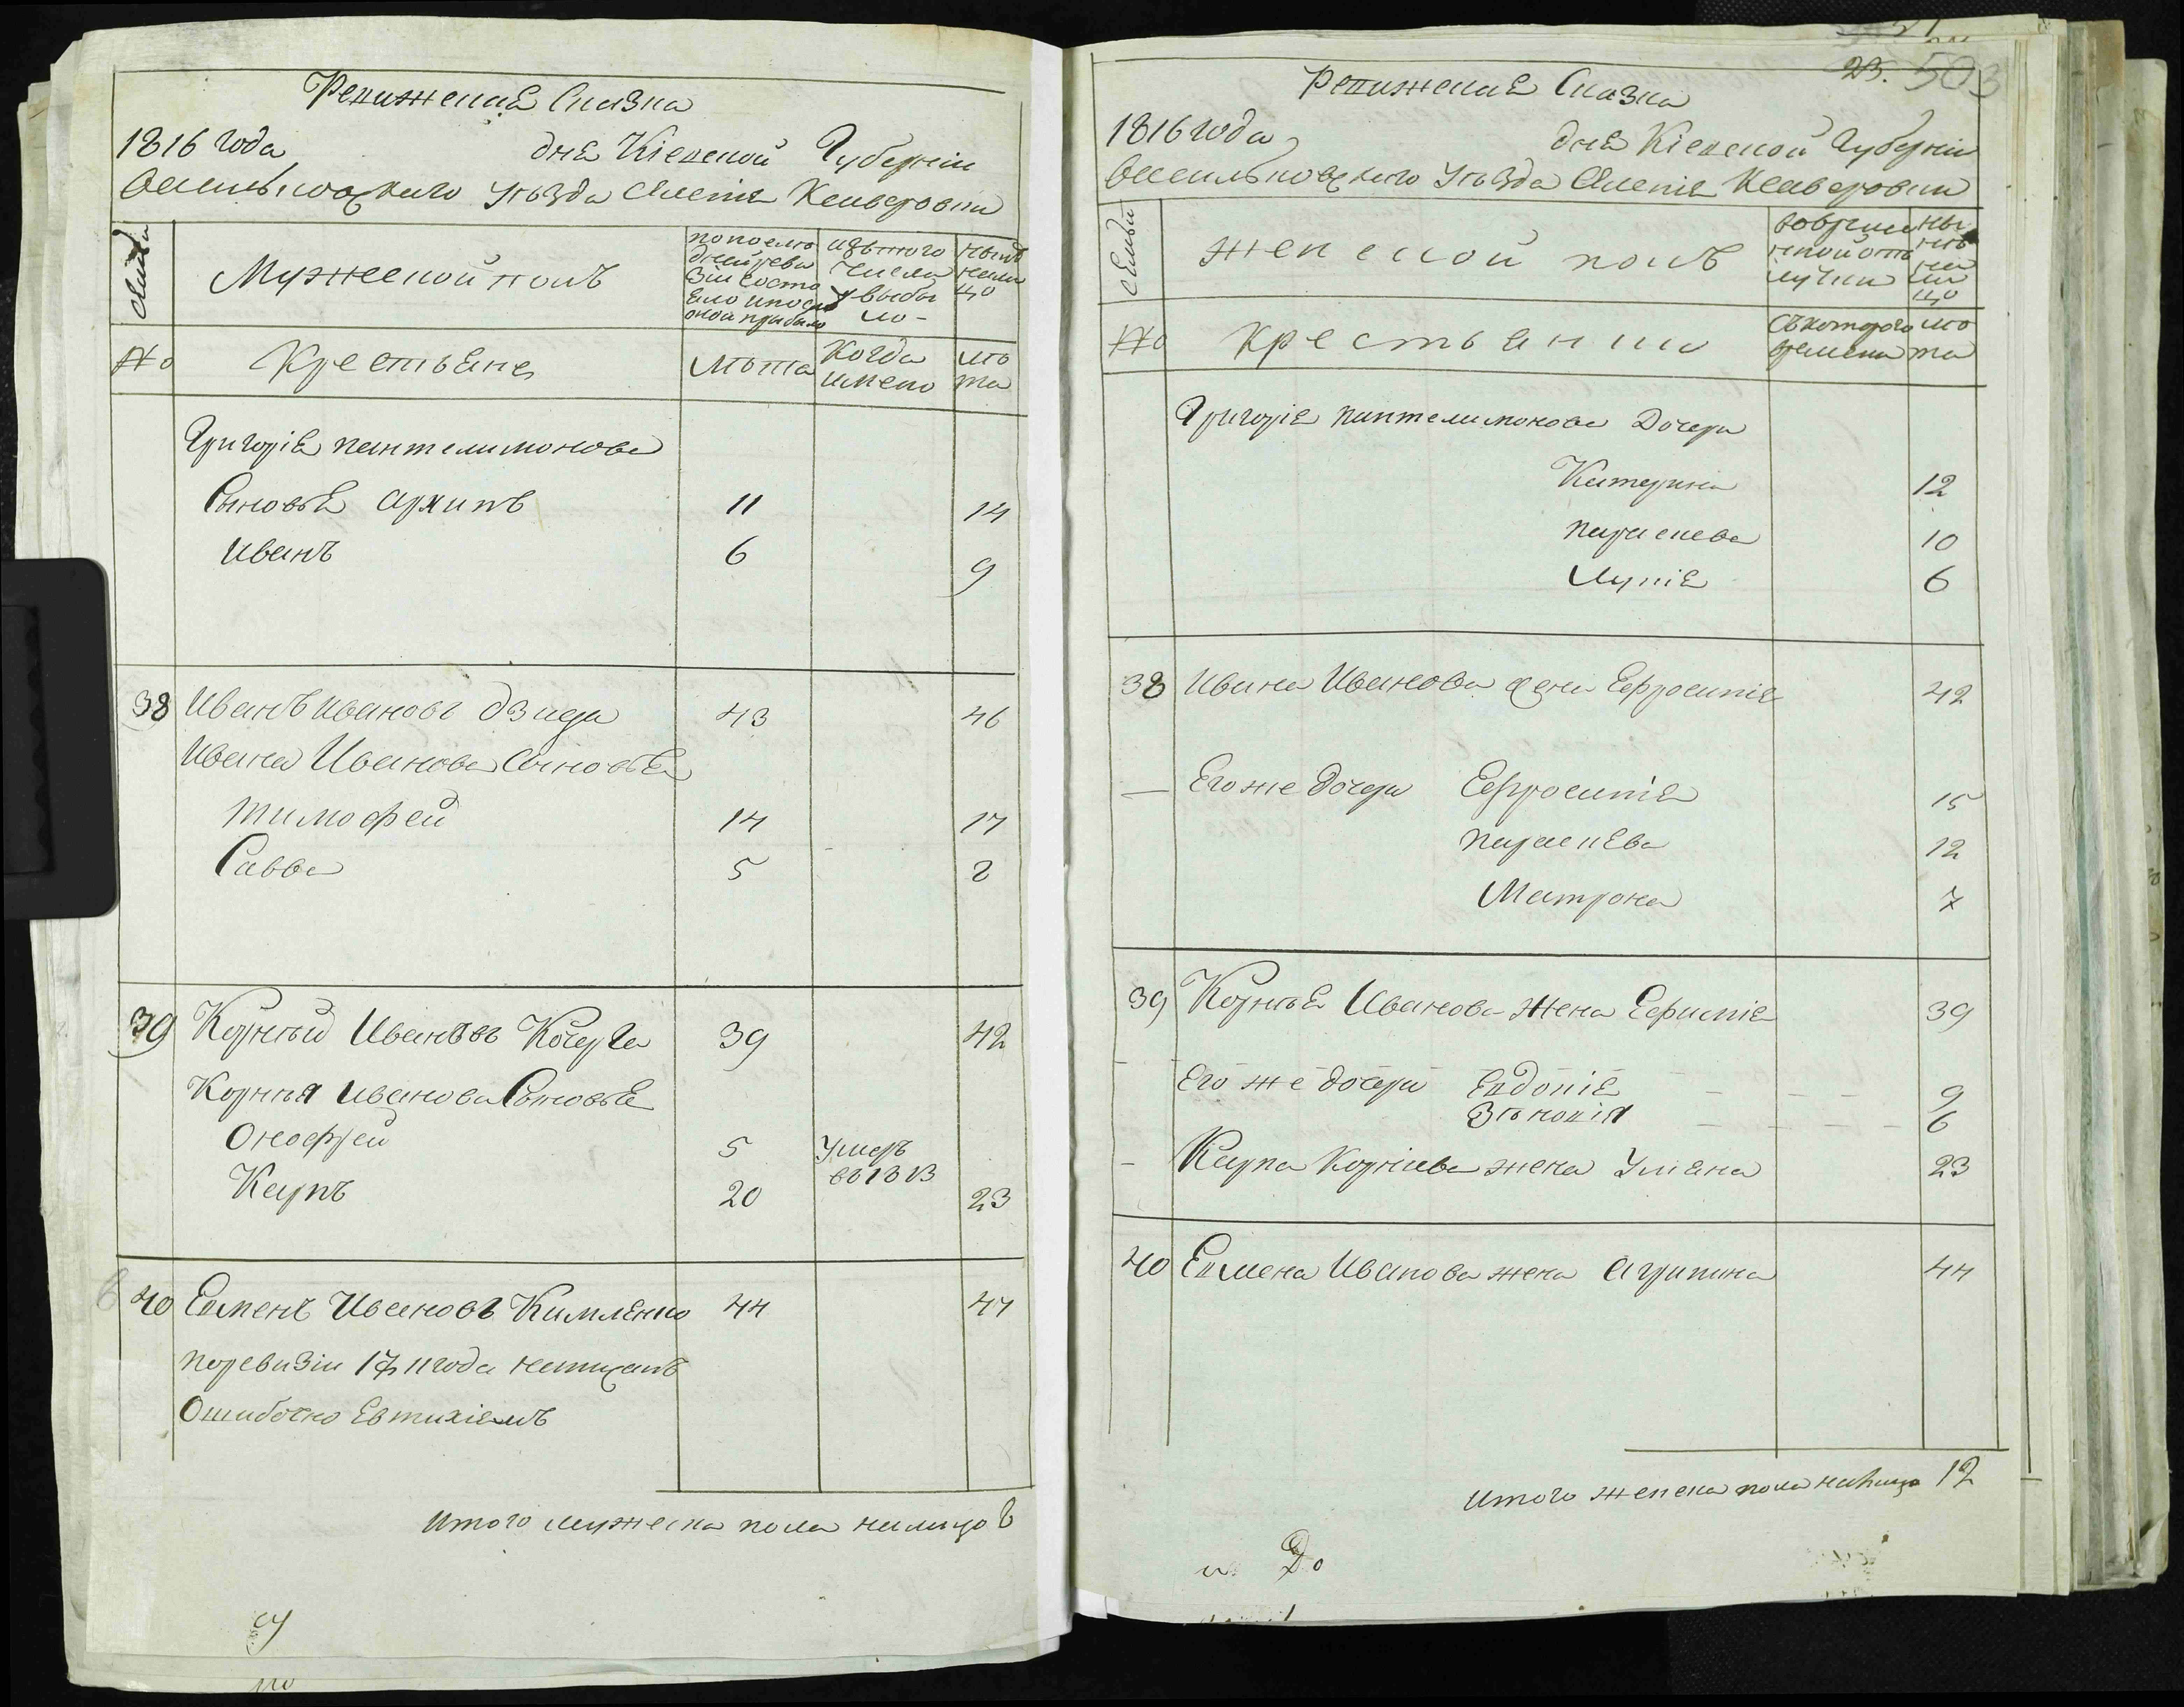 Ревижская Сказка
1816 года дня Кіевской Губерніи
Васильковского Уѣзда
Семьи
Мужеской полъ
по последней ревизіи состояло и после оной прибыло
изъ того числа выбыло
ныне налицо
№
Крестьяне
Лѣта
Когда имено
лѣта
Григорія Пантелимонова
Сыновья Архипъ 11 14
Иванъ 6 9
38 Иванъ Ивановъ Дзига 43 46
Ивана Иванова Сыновья
Тимофей 14 17
Савва 5 8
39 Корнѣй Ивановъ Кочерга 39 42
Корнѣя Иванова Сыновья
Онофрей 5 Умеръ
въ 1813
Карпъ 20 23
40 Евменъ Ивановъ 44 47
По ревизіи 1811 года написанъ
Ошибочно Евтихіемъ
Итого мужеска пола налицо 8
Ревижская Сказка
23. 503
1816 года дня Кіевской Губерніи
Васильковского Уѣзда
Семьи
Женской полъ
во временной отлучки
ныне налицо
№
Крестьянки
Съ которого времени
лѣта
Григорія Пантелимонова Дочери
Катерина 12
Параскева 10
Лукія 6
38 Ивана Иванова жена Ефросинія 42
— Его же дочери Ефросинія 15
Параскева 12
Матрона 7
39 Корнѣя Иванова жена Ефимія 39
Его же дочери Евдокія 9
Зѣновія 6
— Карпа Корніева жена Уліяна 23
40 Евмена Иванова жена Агрипина 44
Итого женска пола налицо 12
До